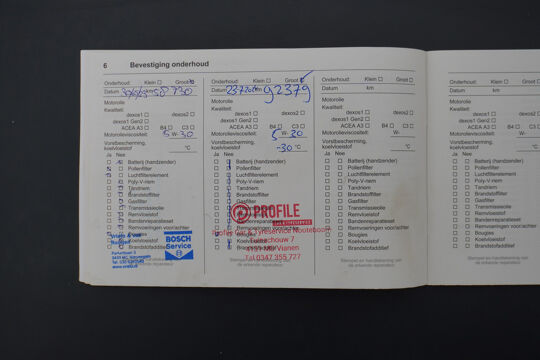 6 Bevestiging onderhoud
Onderhoud: Klein ☐ Groot ☐
Datum km 58730
Motorolie
Kwaliteit:
dexos1 ☐ dexos2 ☐
dexos1 Gen2 ☐
ACEA A3 ☐ B4 ☐ C3 ☐
Motorolieviscositeit: 5 W- 30
Vorstbescherming,
koelvloeistof °C
Ja Nee
Batterij (handzender)
Pollenfilter
Luchtfilterelement
Poly-V-riem
Tandriem
Brandstoffilter
Gasfilter
Transmissieolie
Remvloeistof
Bandenreparatieset
Remvoeringen voor/achter
Bougies
Koelvloeistof
Brandstofadditief
BOSCH
Service
Onderhoud: Klein ☐ Groot ☐
Datum km 92379
Motorolie
Kwaliteit:
dexos1 ☐ dexos2 ☐
dexos1 Gen2 ☐
ACEA A3 ☐ B4 ☐ C3 ☐
Motorolieviscositeit: 5 W- 30
Vorstbescherming,
koelvloeistof -30 °C
Ja Nee
Batterij (handzender)
Pollenfilter
Luchtfilterelement
Poly-V-riem
Tandriem
Brandstoffilter
Gasfilter
PROFILE
Koelvloeistof
Brandstofadditief
4131 Vianen
Tel 0347 355 727
Onderhoud: Klein ☐ Groot ☐
Datum km
Motorolie
Kwaliteit:
dexos1 ☐ dexos2 ☐
dexos1 Gen2 ☐
ACEA A3 ☐ B4 ☐ C3 ☐
Motorolieviscositeit: W-
Vorstbescherming,
koelvloeistof °C
Ja Nee
Batterij (handzender)
Pollenfilter
Luchtfilterelement
Poly-V-riem
Tandriem
Brandstoffilter
Gasfilter
Transmissieolie
Remvloeistof
Bandenreparatieset
Remvoeringen voor/achter
Bougies
Koelvloeistof
Brandstofadditief
Stempel en handtekening van
de erkende reparateur
Onderhoud: Klein ☐ Groot
Datum km
Motorolie
Kwaliteit:
dexos1 ☐ dexos2
dexos1 Gen2 ☐
ACEA A3 ☐ B4 ☐ C3
Motorolieviscositeit: W-
Vorstbescherming,
koelvloeistof
Ja Nee
Batterij (handzender)
Pollenfilter
Luchtfilterelement
Poly-V-riem
Tandriem
Brandstoffilter
Gasfilter
Transmissieolie
Remvloeistof
Bandenreparatieset
Remvoeringen voor/achter
Bougies
Koelvloeistof
Brandstofadditief
Stempel en handtekening van
de erkende reparateur